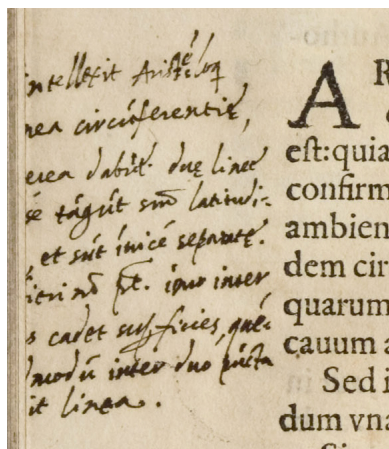 intellexit Aristel loq
nea circūferentię,
erea dabit duę lineę
sę tāgūt sm̄ latitudi-
et sūt īuicē separatę.
fieri nō pt. imo inter
s cadet suꝑficies, quē-
modū inter duo pūcta
it linea.
A R
est: quia
confirm
ambien
dem cir
quarum
cauum a
Sed i
dum vna